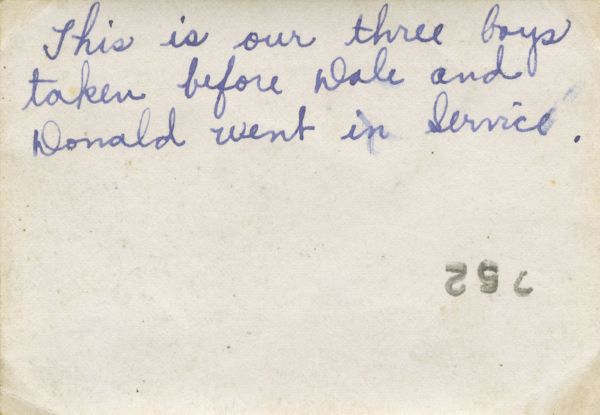 This is our three boys
taken before Dale and
Donald went in Service.